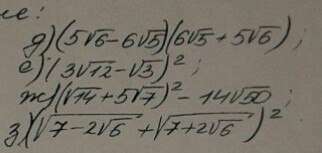 ие:
д) (5√6-6√5)(6√5+5√6);
е) (3√12-√3)²;
ж) (√14+5√7)²-14√50;
з) (√(7-2√6)+√(7+2√6))²